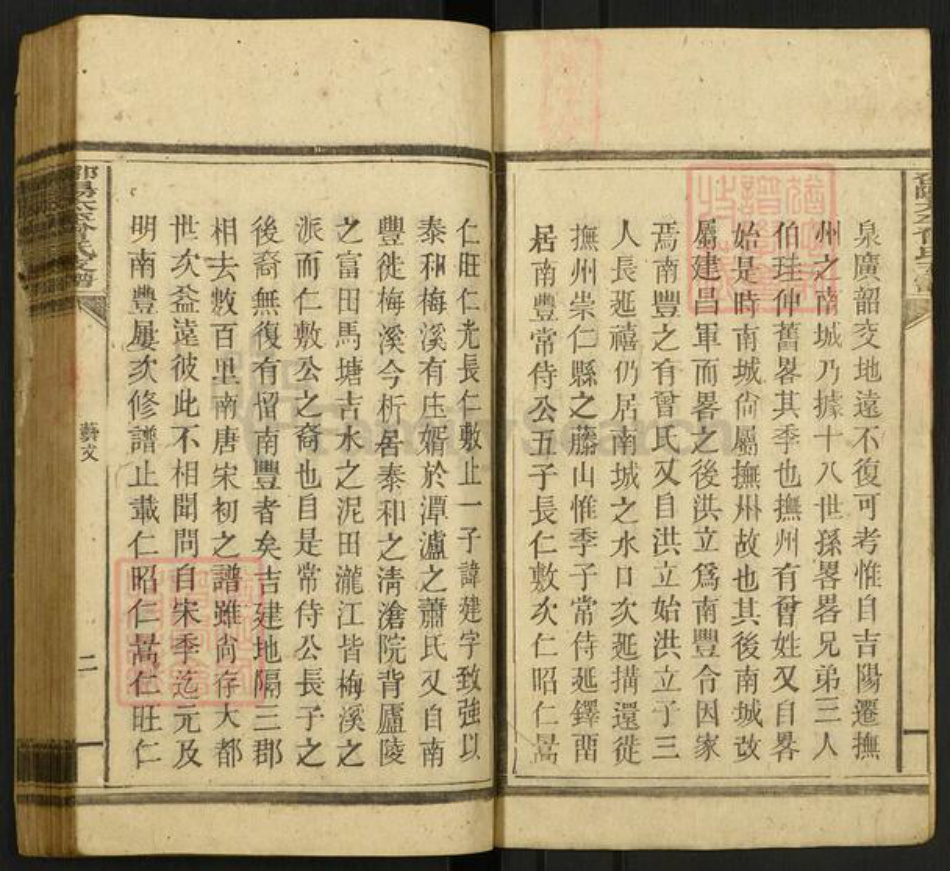 泉廣韶交地遠不復可考惟自吉陽遷撫
州之南城乃據十八世孫畧畧兄弟三人
伯珪仲舊畧其季也撫州有曾姓又自畧
始是時南城尙屬撫州故也其後南城改
屬建昌軍而畧之後洪立爲南豐令因家
焉南豐之有曾氏又自洪立始洪立于三
人長延禧仍居南城之水口次延搆還徙
撫州崇仁縣之藤山惟季子常侍延鐸畱
居南豐常侍公五子長仁敷次仁昭仁暠
仁旺仁光長仁敷止一子諱建字致強以
泰和梅溪有庄婿於潭瀘之蕭氏又自南
豐徙梅溪今析居泰和之淸滄院背廬陵
之富田馬塘吉水之泥田瀧江皆梅溪之
派而仁敷公之裔也自是常侍公長子之
後裔無復有留南豐者矣吉建地隔三郡
相去數百里南唐宋初之譜雖尙存大都
世次益遠彼此不相聞問自宋季迄元及
明南豐屢次修譜止載仁昭仁暠仁旺仁
藝文
二